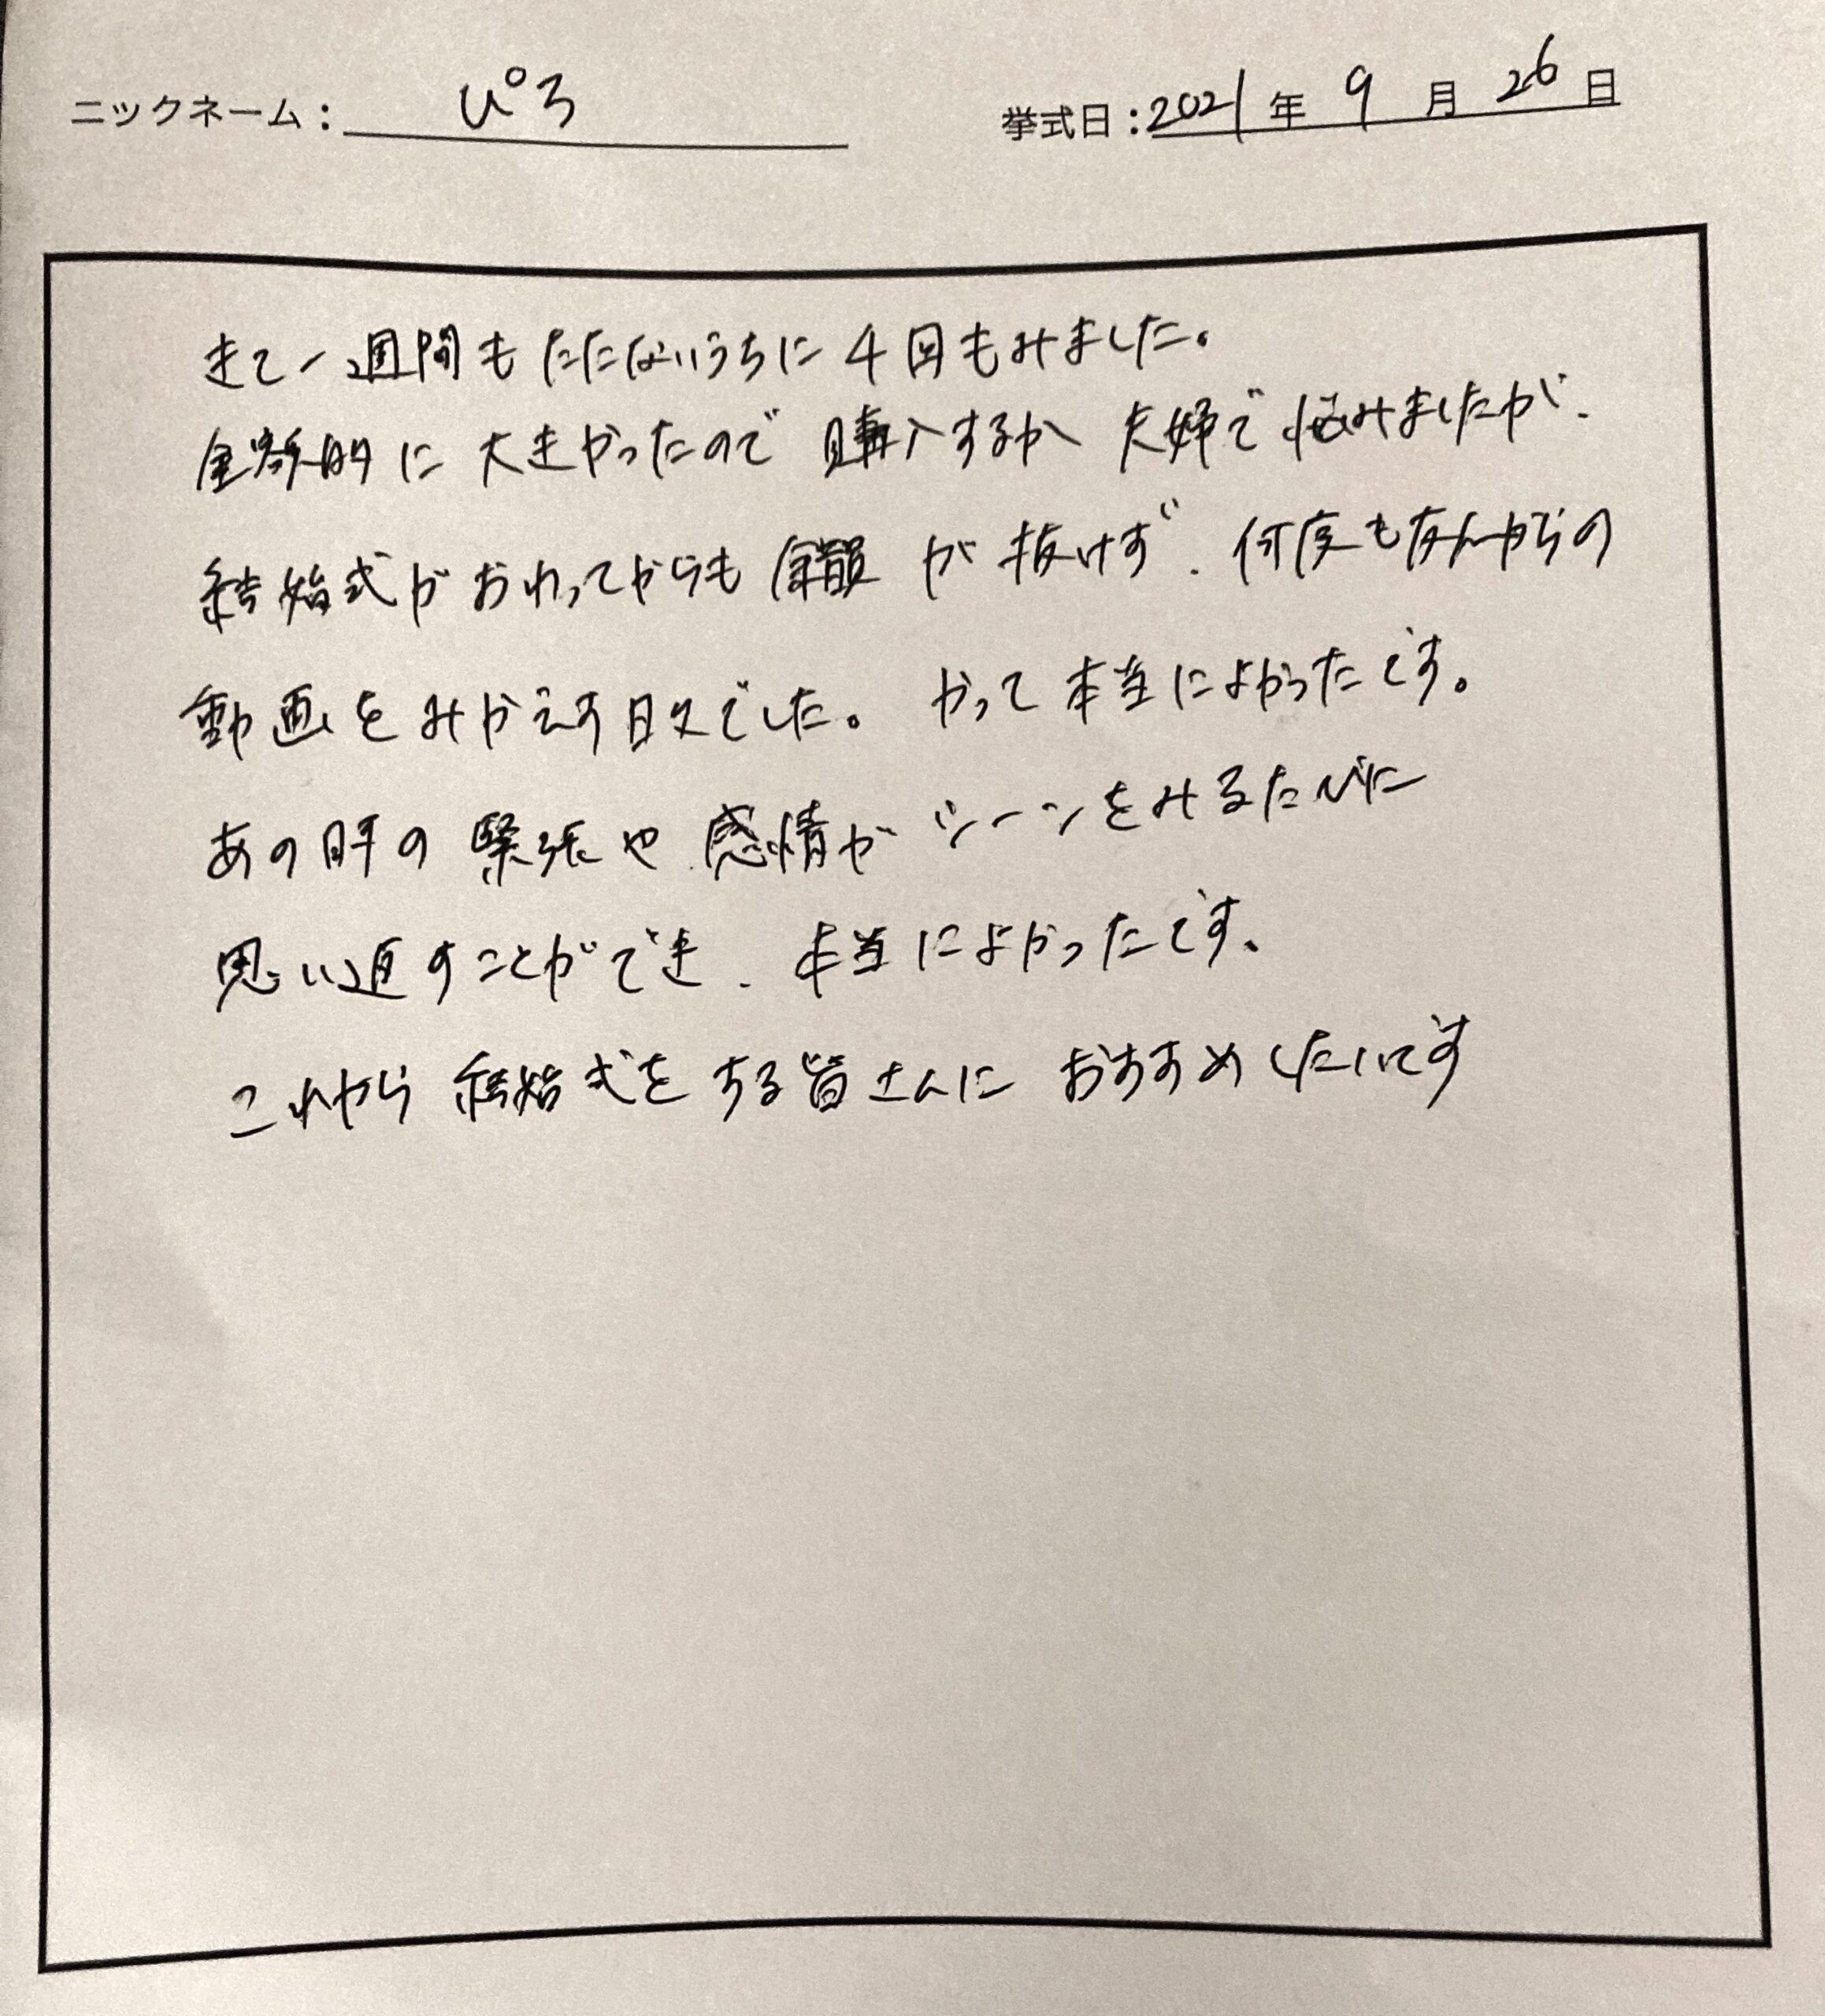 ニックネーム： ぴろ 挙式日：2021年9月26日
きて一週間もたたないうちに4回もみました。
金額的に大きかったので購入するか夫婦で悩みましたが、
結婚式がおわってからも余韻が抜けず、何度も友人からの
動画をみかえす日々でした。かって本当によかったです。
あの時の緊張や感情がシーンをみるたびに
思い返すことができ、本当によかったです、
これから結婚式をする皆さんにおすすめしたいです